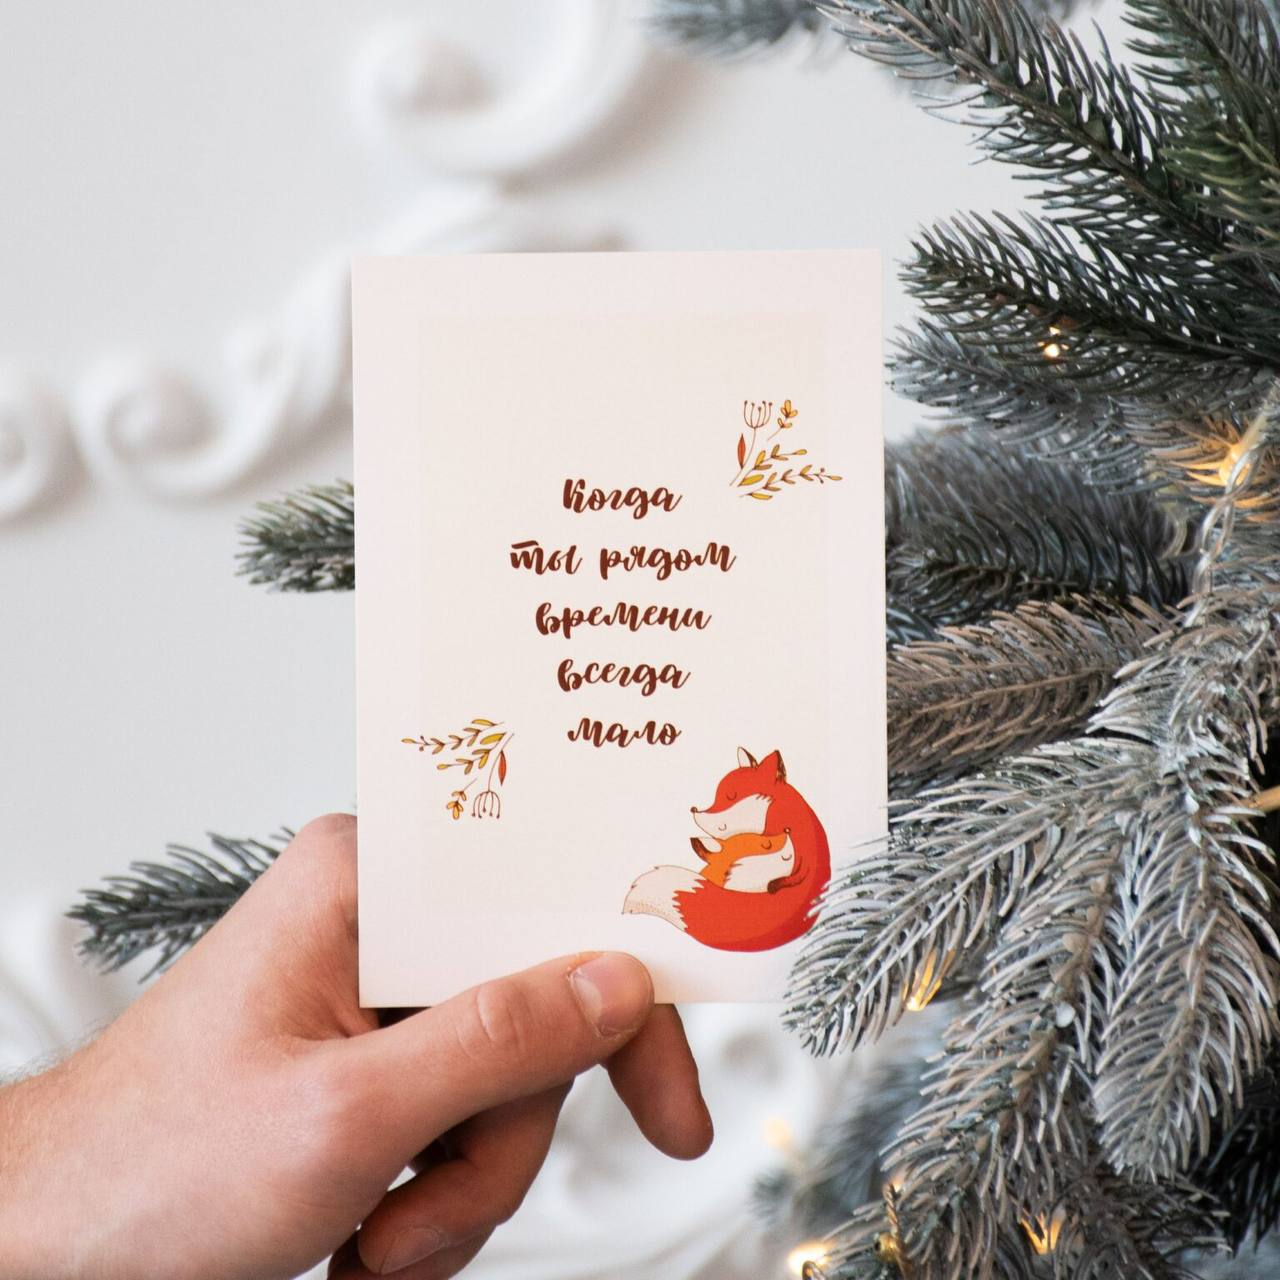 Когда
ты рядом
времени
всегда
мало